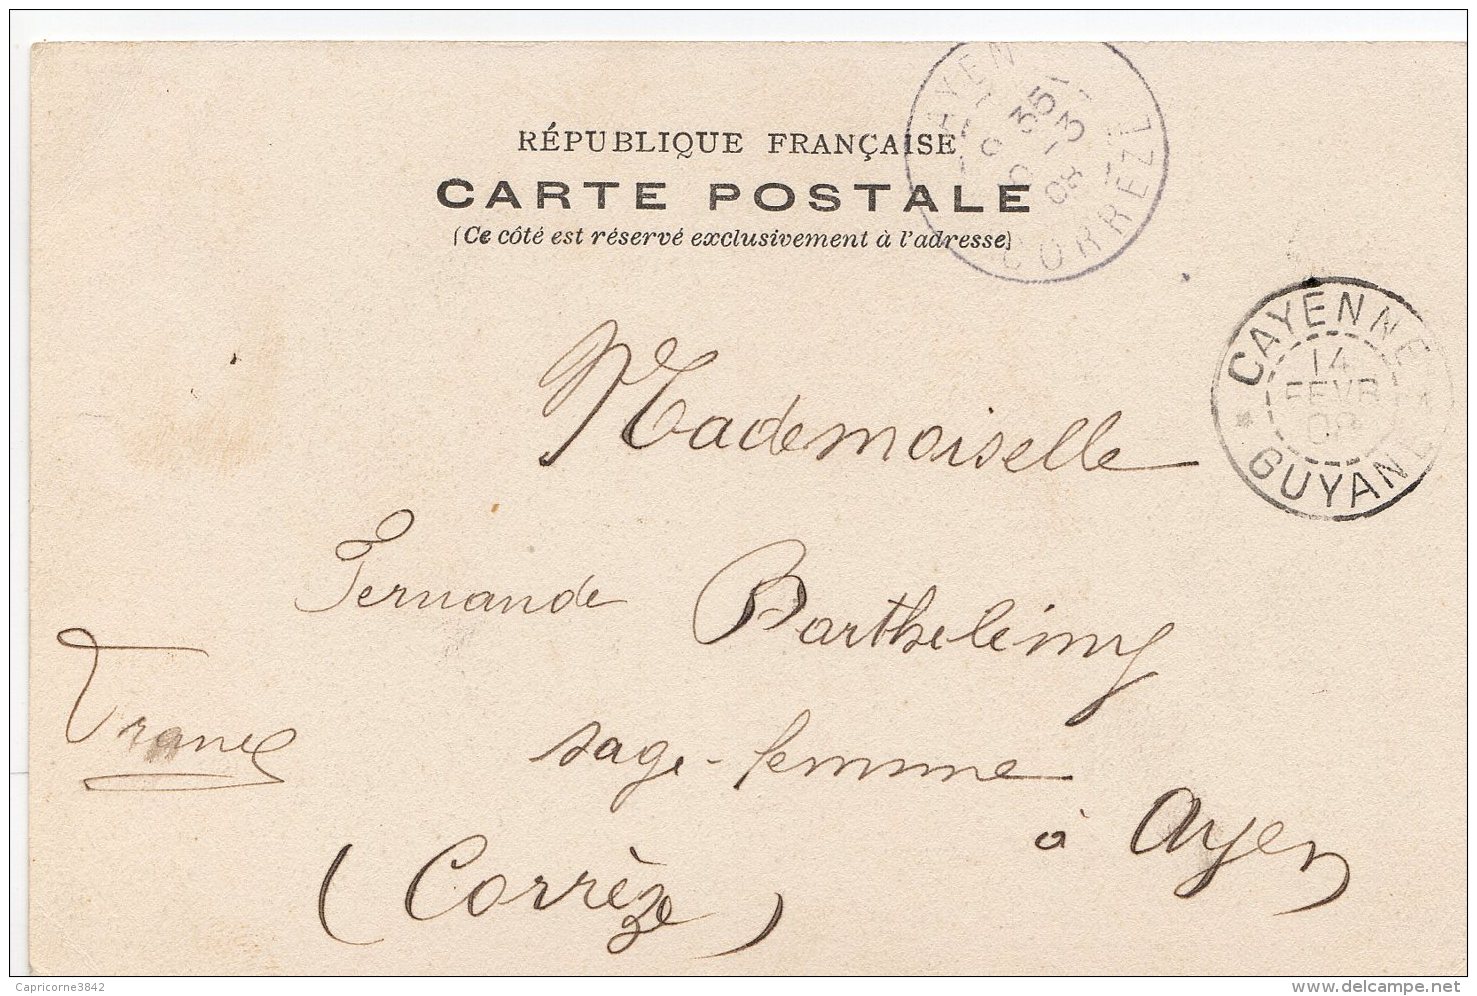 RÉPUBLIQUE FRANÇAISE
CARTE POSTALE
(Ce côté est réservé exclusivement à l'adresse)
AYEN
CORRÈZE
CAYENNE
14
FEVR
08
* GUYANE
Mademoiselle
Fernande Barthelémy
France
sage-femme
à Ayen
(Corrèze)
Capricorne3842
www.delcampe.net